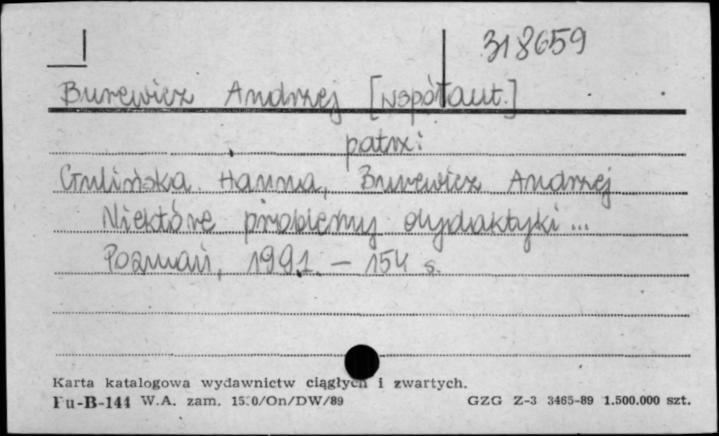 318659
Burewicz Andrzej [współaut.]
patrz:
Gulińska Hanna, Burewicz Andrzej
Niektóre problemy dydaktyki...
Poznań, 1991. – 154 s.
Karta katalogowa wydawnictw ciągłych i zwartych.
Pu-B-144 W.A. zam. 1520/On/DW/89 GZG Z-3 3465-89 1.500.000 szt.